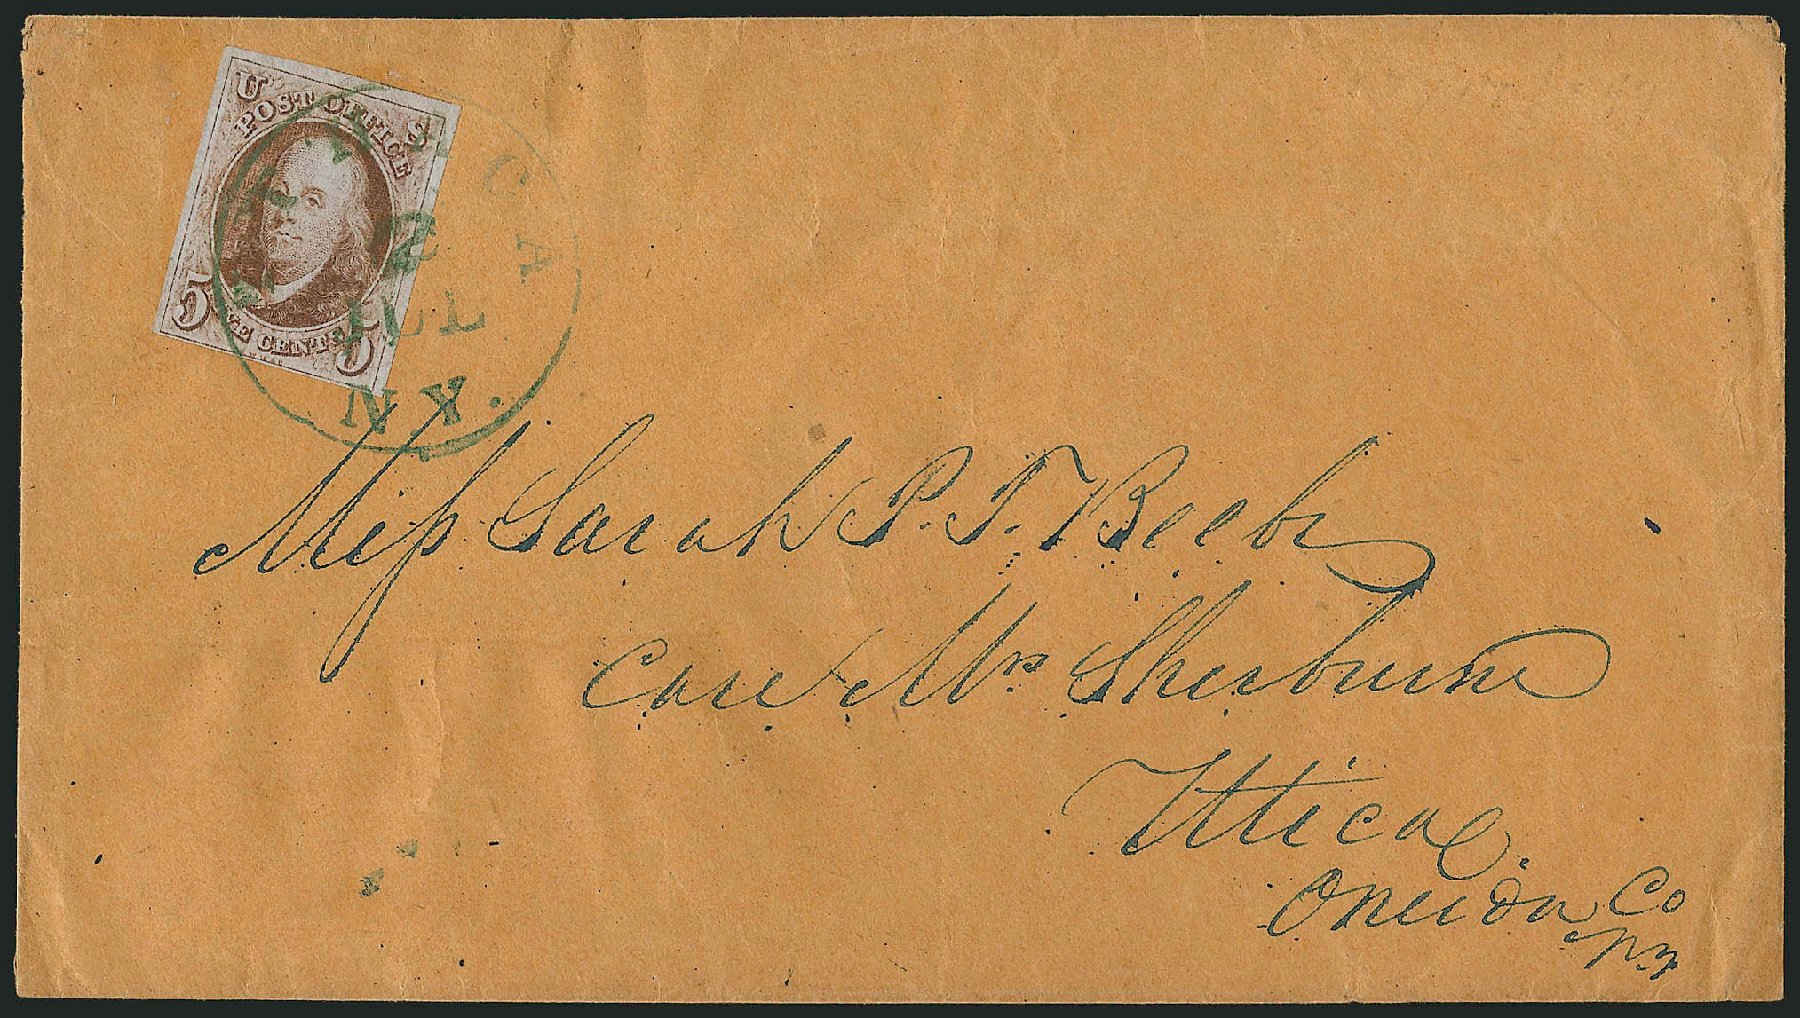 U S
POST OFFICE
FIVE CENTS
5 5
2
N.Y.
Miss Sarah P. T. Beebe
Care Mrs Sherburne
Utica
Oneida Co
N.Y